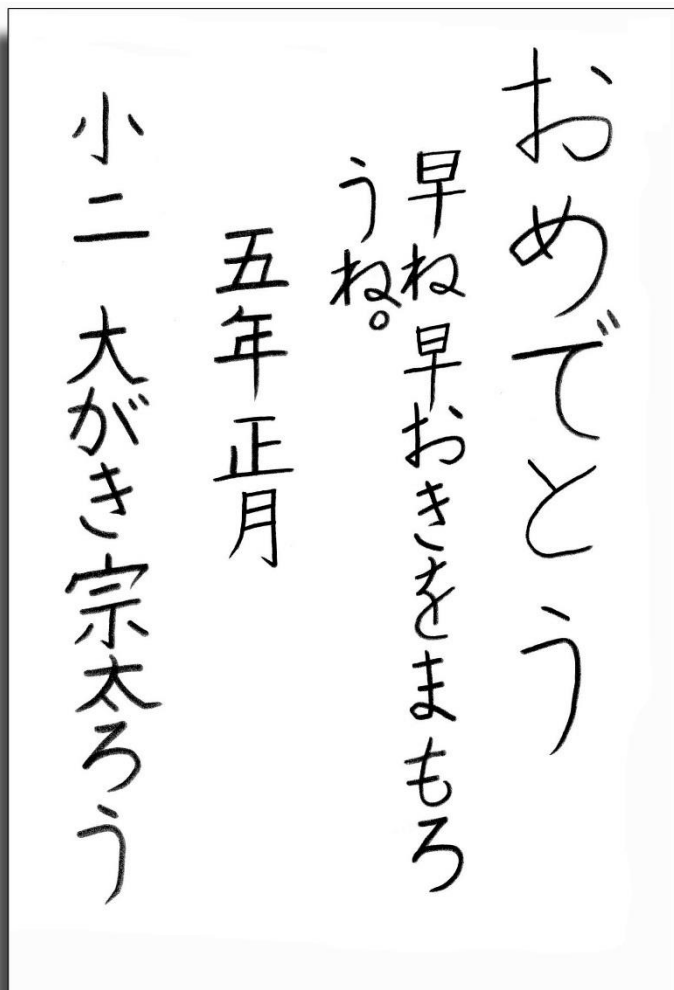 おめでとう
早ね早おきをまもろ
うね。
五年正月
小二 大がき宗太ろう